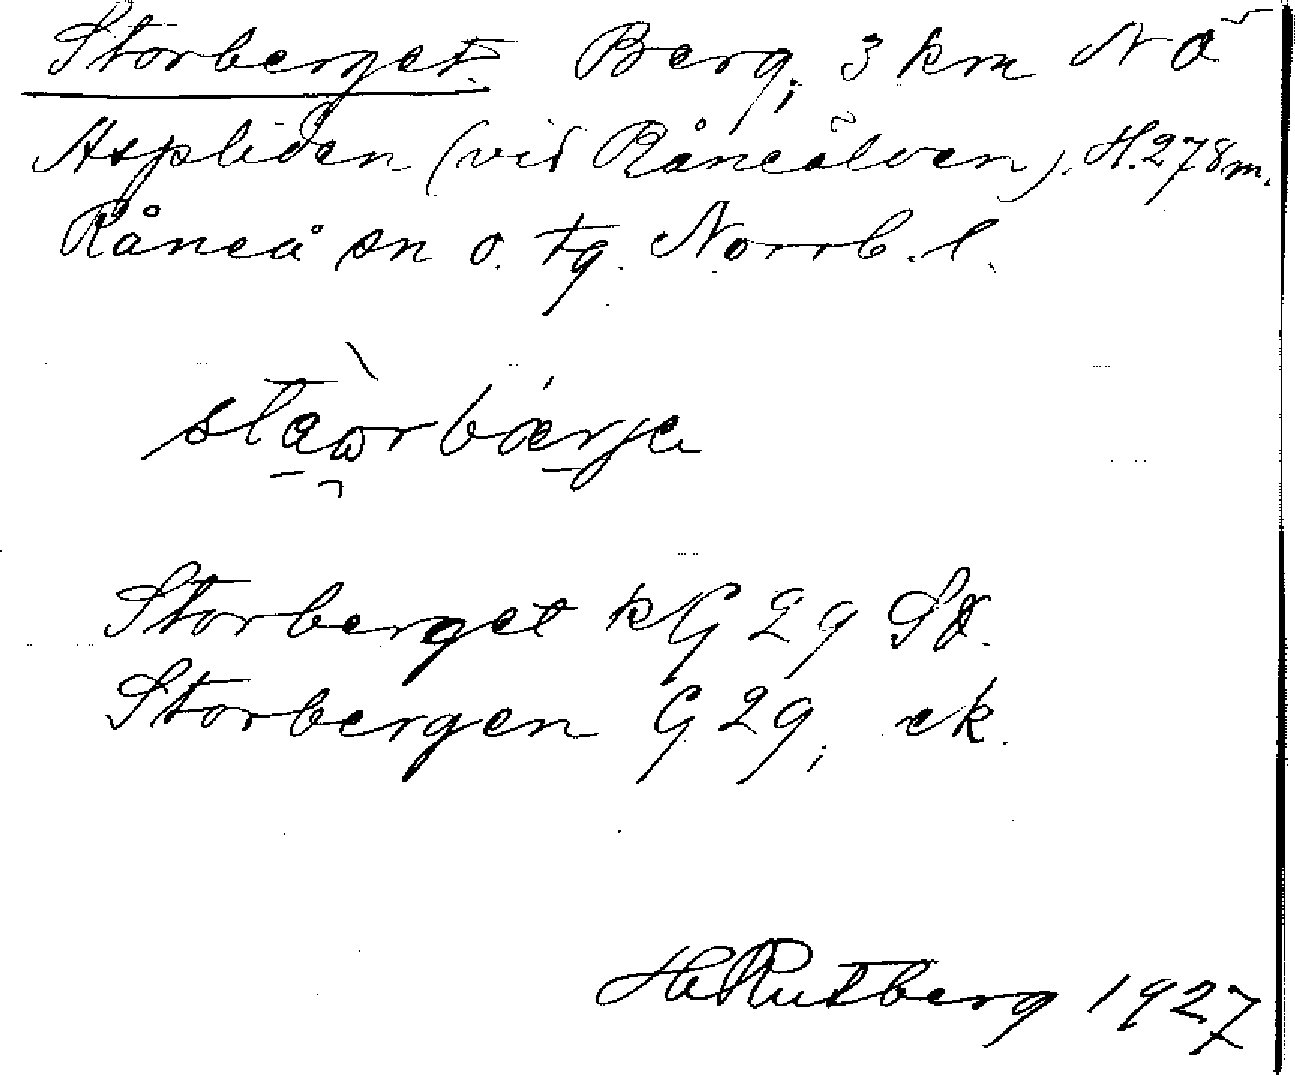 Storberget. Berg, 3 km NÖ
Aspliden (vid Råneälven). H. 278 m.
Råneå sn o. tg. Norrb. l.
Storberget kG 29 SÖ.
Storbergen G 29, ek.
H Rutberg 1927